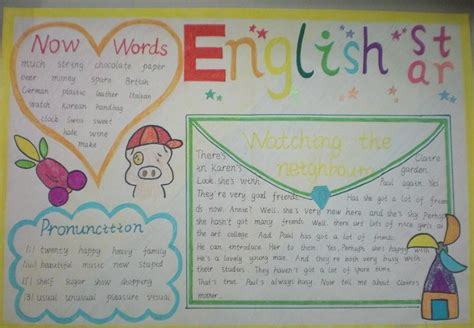 Now Words
much string chocolate paper
over money spare British
German plastic leather Italian
watch Korean handbag
clock Swiss sweet
hale wine
make
English star
Watching the
neighbours
There's Claire
in Karen's garden.
Look she's with Paul again Yes
They're very good friends. Has she got a lot of friends
do now. Annie? Well. she's very new here and she's shy Perhaps
she hasn't got many friends. Well there are lots of nice girls at
the art college. And Paul has got a lot of friends.
He can introduce Her to them. Yes. Perhaps she's happy with
He's a lovely young man. And they're both very busy with
their studies. They haven't got a lot of spare time.
That's true. Paul's always hony. Now tell me about Claire's
mother...
Pronunction
[i] twenty happy heavy family
[iu] beautiful music new stuped
[ʃ] shelf sugar show shopping
[ʒ] usual unusual pleasure visual